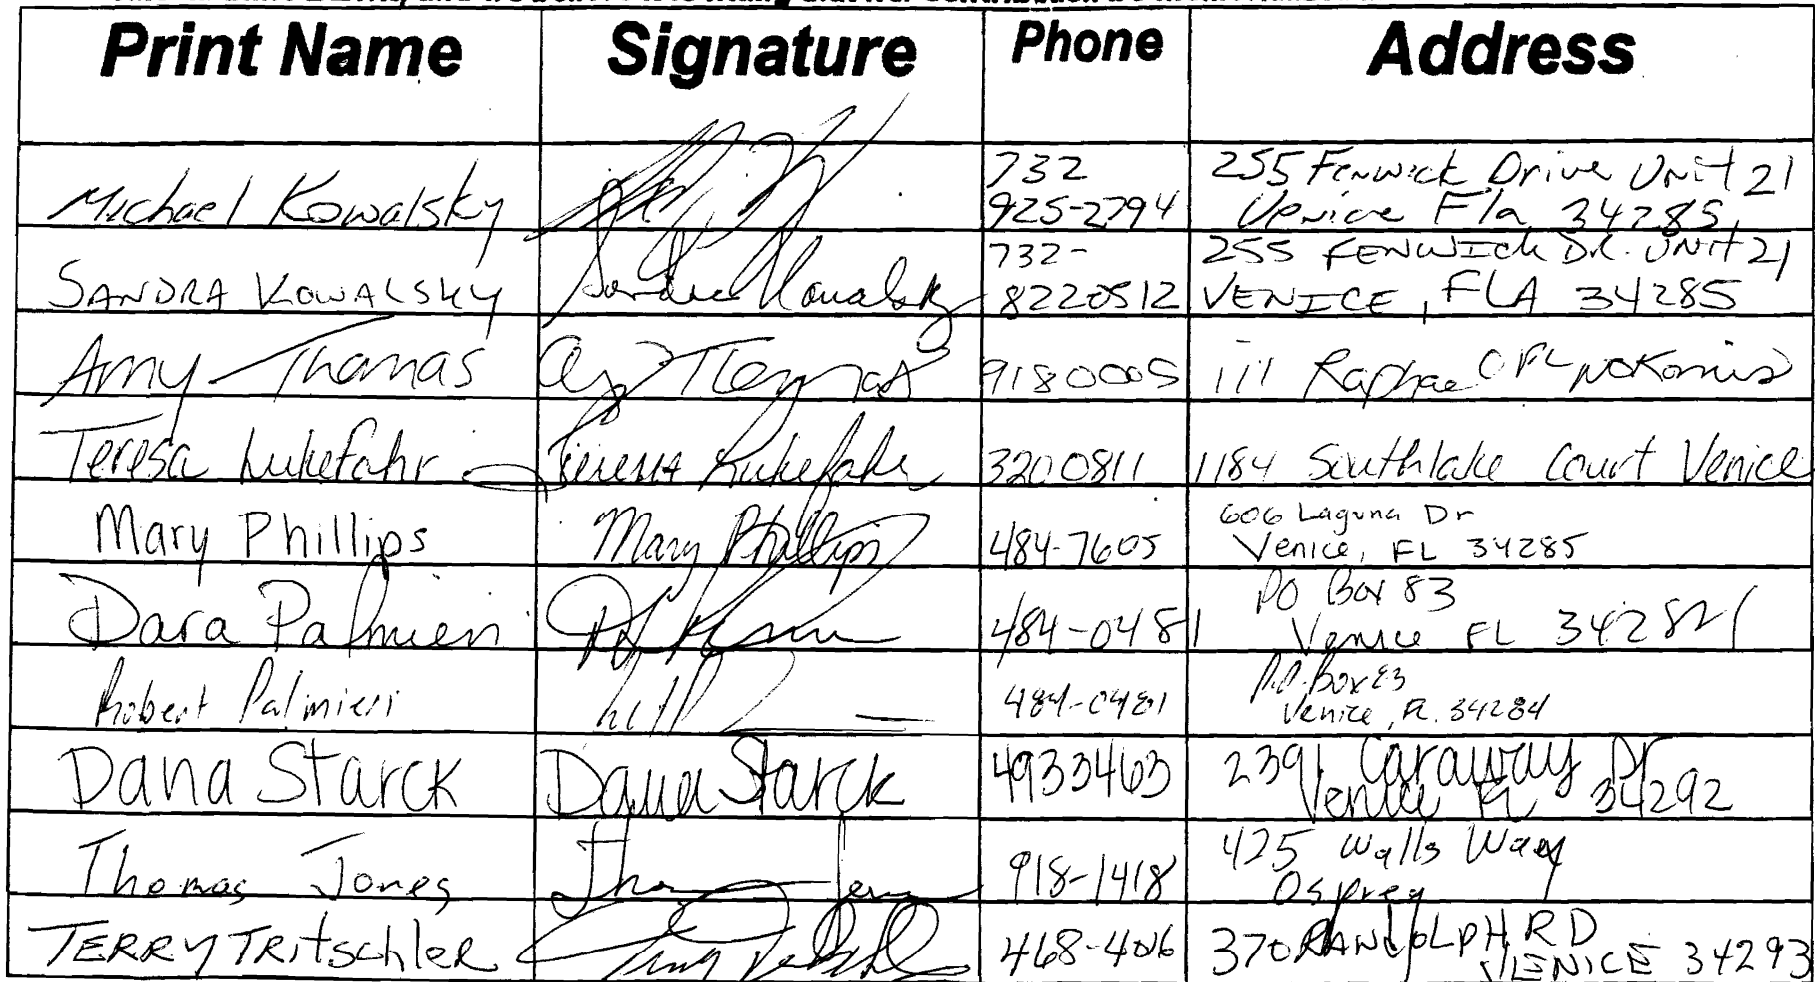 Print Name Signature Phone Address
Michael Kowalsky 732 925-2794 255 Fenwick Drive Unit 21
Venice Fla 34285
SANDRA KOWALSKY Sandra Kowalsky 732- 8220512 255 FENWICK DR. UNIT 21
VENICE, FLA 34285
Amy Thomas 9180005 111 Raphael PL Nokomis
Teresa Lukefahr Teresa Lukefahr 3200811 1184 Southlake Court Venice
Mary Phillips Mary Phillips 484-7605 606 Laguna Dr
Venice, FL 34285
Dara Palmieri 484-0481 PO Box 83
Venice FL
Robert Palmieri 484-0481 P.O. Box 83
Venice, FL. 34284
Dana Starck Dana Starck 4933463 2391 Caraway Dr
Venice FL 34292
Thomas Jones 918-1418 425 Walls Way
Osprey
TERRY TRITSCHLER 370 RANDOLPH RD
VENICE 34293